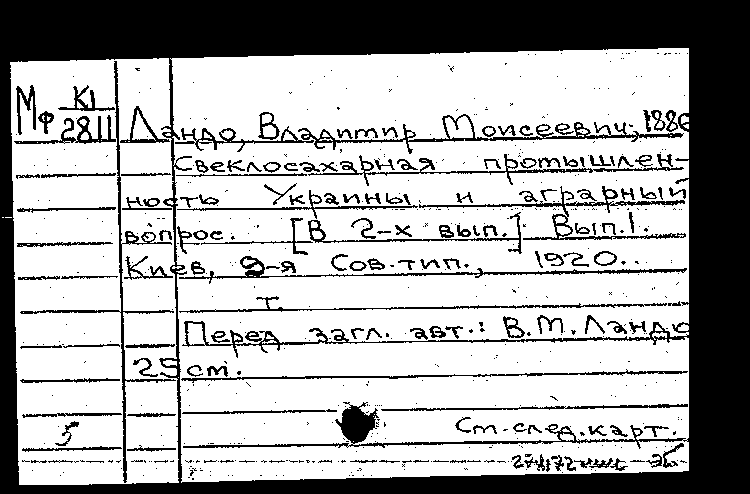 Мф К1
2811
Ландо, Владимир Моисеевич, 1886
Свеклосахарная промышлен-
ность Украины и аграрный
вопрос. [В 2-х вып.] Вып.1.
Киев, 9-я Сов.тип., 1920..
т.
Перед загл. авт.: В.М.Ландо
25 см.
5
См.след.карт.